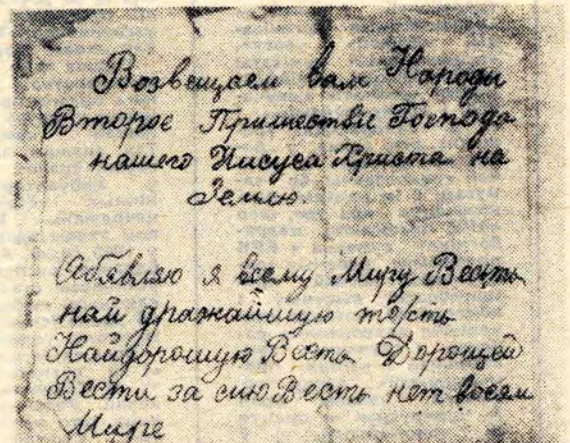 Возвещаем вам Народы
Второе Пришествие Господа
нашего Иисуса Христа на
Землю.
Абявляю я всему Миру Весть
най дражайшую
Найдорошую Весть Дорощей
Вести за сию Весть нет восем
Мире